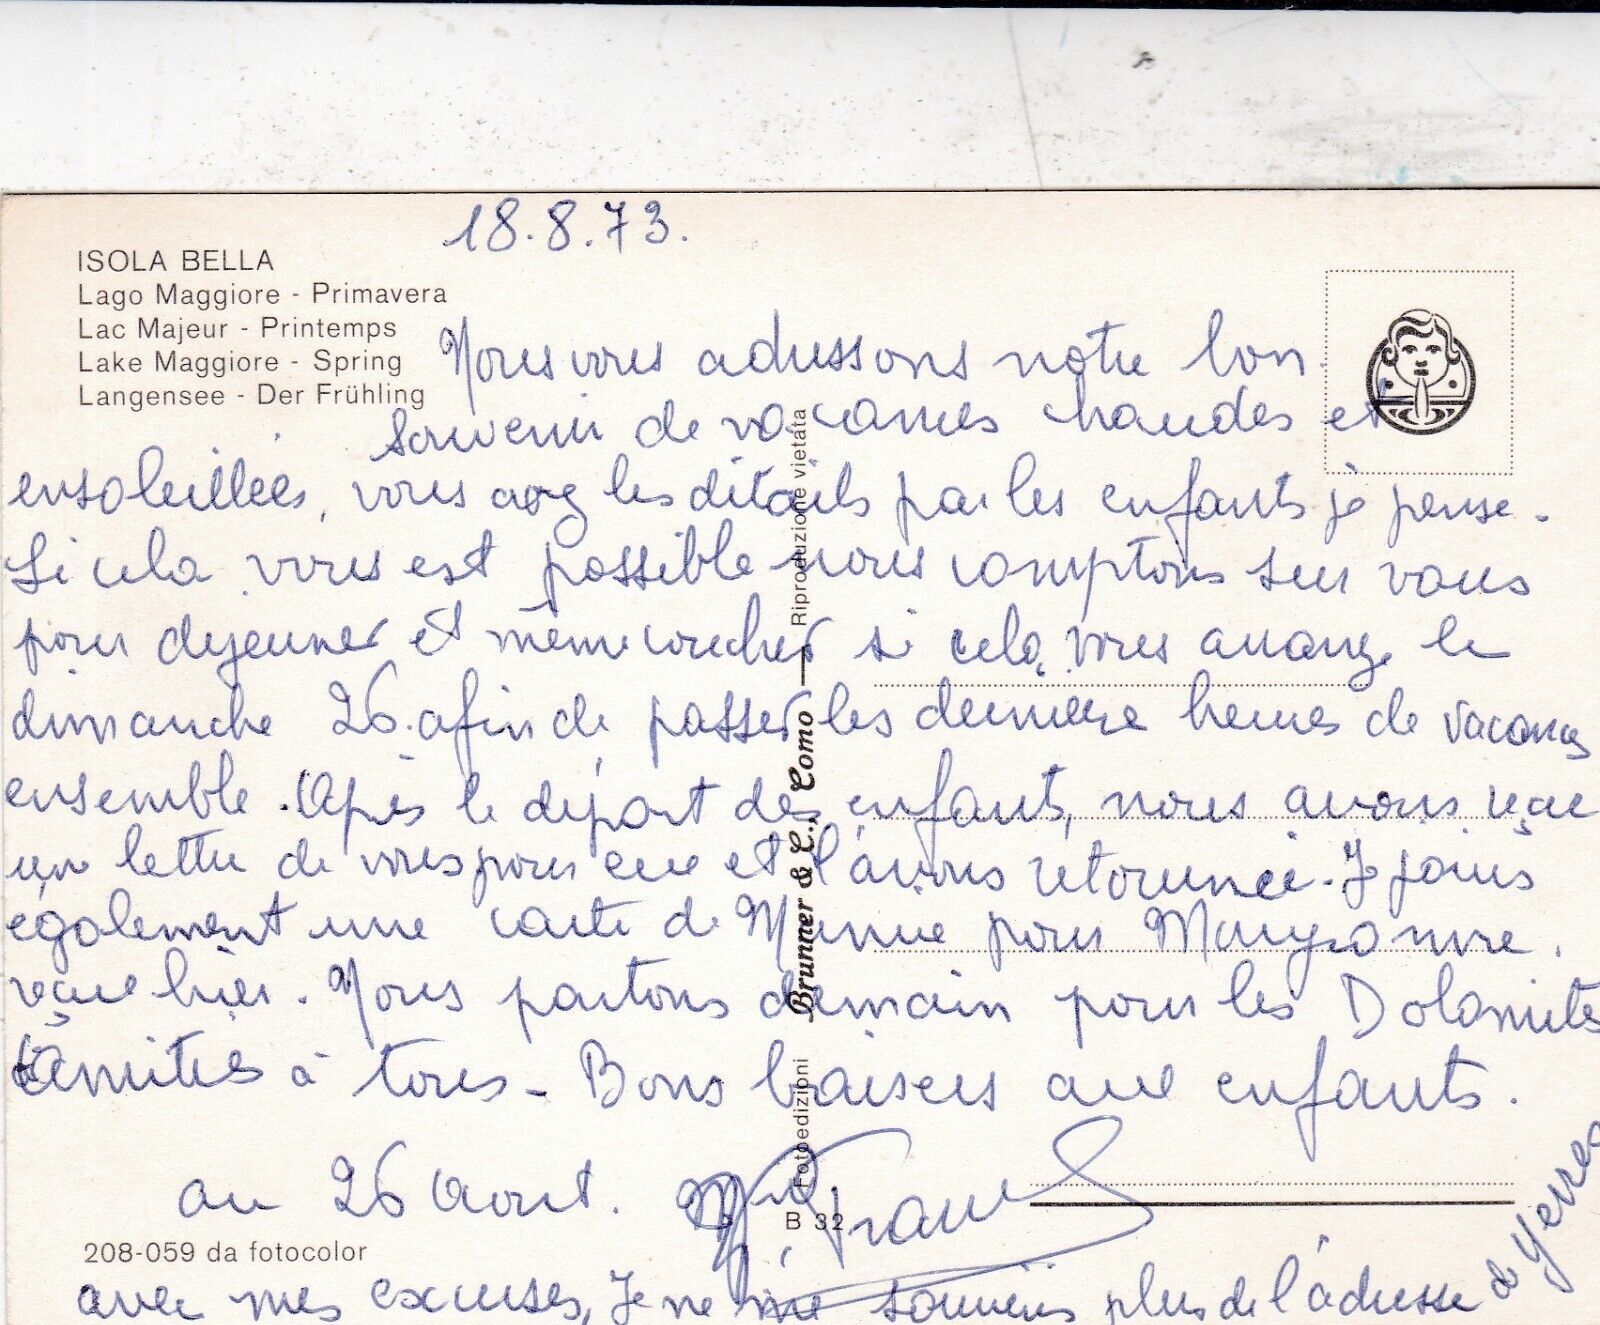 18.8.73.
ISOLA BELLA
Lago Maggiore - Primavera
Lac Majeur - Printemps
Lake Maggiore - Spring
Langensee - Der Frühling
Nous vous adressons notre bon
souvenir de vacances chaudes et
ensoleillées, vous avez les détails par les enfants je pense.
Si cela vous est possible nous comptons sur vous
pour dejeuner et même coucher si cela vous arrange le
dimanche 26 afin de passer les dernière heures de vacances
ensemble. Après le départ des enfants, nous avons reçue
un lettre de vous pour eux et l'avons retournée. Je joins
également une carte de pour
reçue hier. Nous partons demain pour les Dolomites
Amitiés à tous - Bons baisers aux enfants.
au 26 Aout.
avec mes excuses, Je ne me souviens plus de l'adresse de Yerres
208-059 da fotocolor
B 32
Fotoedizioni Brunner & C., Como — Riproduzione vietata